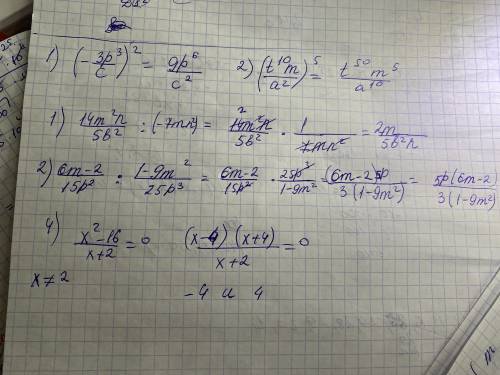 1) (-3p³/c)² = 9p⁶/c² 2) (t¹⁰m/a²)⁵ = t⁵⁰m⁵/a¹⁰
1) 14m²n/5b² : (-7mn²) = 14m²n/5b² · 1/7mn² = 2m/5b²n
2) 6m-2/15p² : 1-9m²/25p³ = 6m-2/15p² · 25p³/1-9m² = (6m-2)5p/3(1-9m²) = 5p(6m-2)/3(1-9m²)
4) x²-16/x+2 = 0 (x-4)(x+4)/x+2 = 0
x≠2 -4 и 4